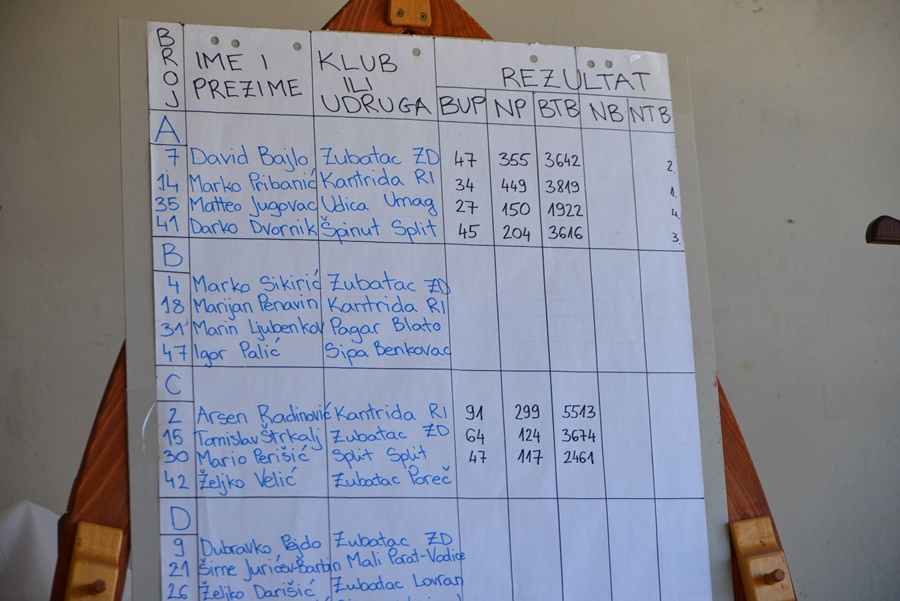 BROJ IME I PREZIME KLUB ILI UDRUGA REZULTAT
BUP NP BTB NB NTB
A
7 David Bajlo Zubatac ZD 47 355 3642 2.
14 Marko Pribanić Kantrida RI 34 449 3819 1.
35 Matteo Jugovac Udica Umag 27 150 1922 4.
41 Darko Dvornik Špinut Split 45 204 3616 3.
B
4 Marko Sikirić Zubatac ZD
18 Marijan Penavin Kantrida RI
31 Marin Ljubenkov Pagar Blato
47 Igor Palić Sipa Benkovac
C
2 Arsen Radinović Kantrida RI 91 299 5513
15 Tomislav Štrkalj Zubatac ZD 64 124 3674
30 Mario Perišić Split Split 47 117 2461
42 Željko Velić Zubatac Poreč
D
9 Dubravko Zubatac ZD
21 Šime Jurićev-Barbin Mali Porat-Vodice
26 Željko Darišić Zubatac Lovran